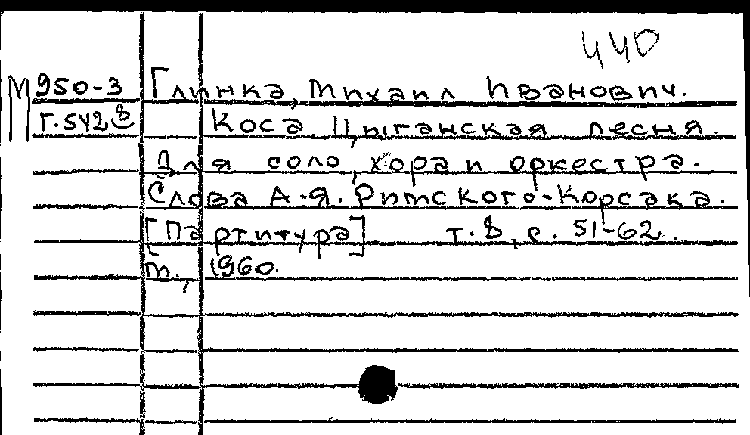 440
М 950-3 Глинка, Михаил Иванович.
Г.542 Коса. Цыганская песня.
Для соло, хора и оркестра.
Слова А.Я. Римского-Корсака.
[Партитура] т. 8, с. 51-62.
М., 1960.